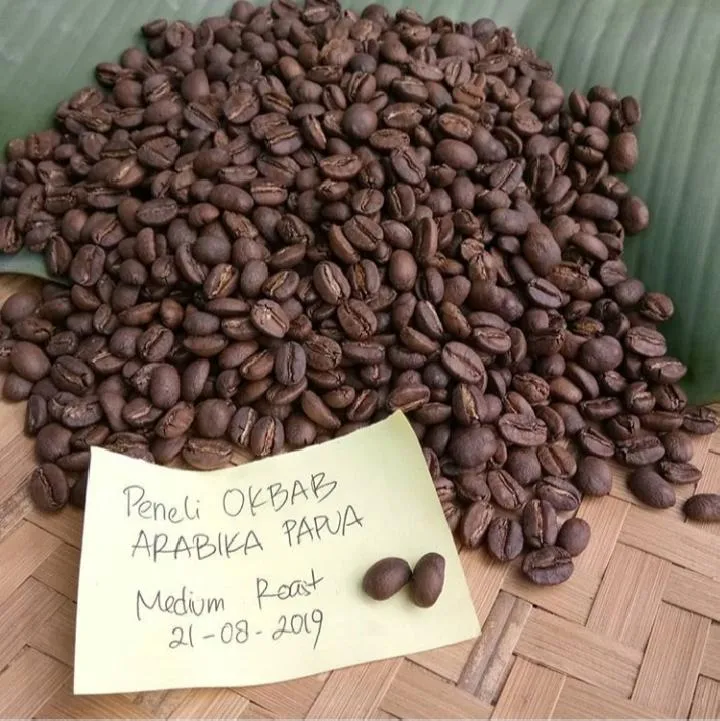 Peneli OKBAB
ARABIKA PAPUA
Medium Roast
21-08-2019